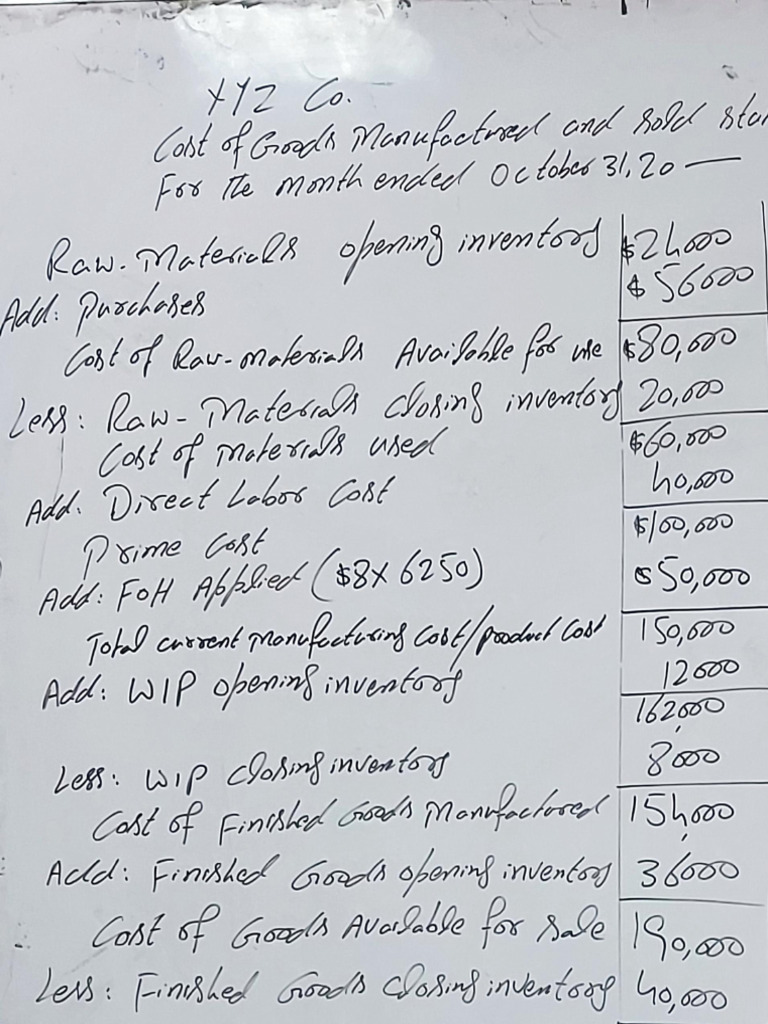 XYZ Co.
Cost of Goods Manufactured and sold
For the month ended October 31, 20 —
Raw-Materials opening inventory $24000
Add: Purchases $56000
Cost of Raw-materials Available for use $80,000
Less: Raw-Materials closing inventory 20,000
Cost of materials used $60,000
Add: Direct Labor Cost 40,000
Prime Cost $100,000
Add: FOH Applied ($8x6250) $50,000
Total current manufacturing Cost/product Cost 150,000
Add: WIP opening inventory 12000
162,000
Less: WIP Closing inventory 8000
Cost of Finished Goods Manufactured 154,000
Add: Finished Goods opening inventory 36000
Cost of Goods Available for sale 190,000
Less: Finished Goods Closing inventory 40,000